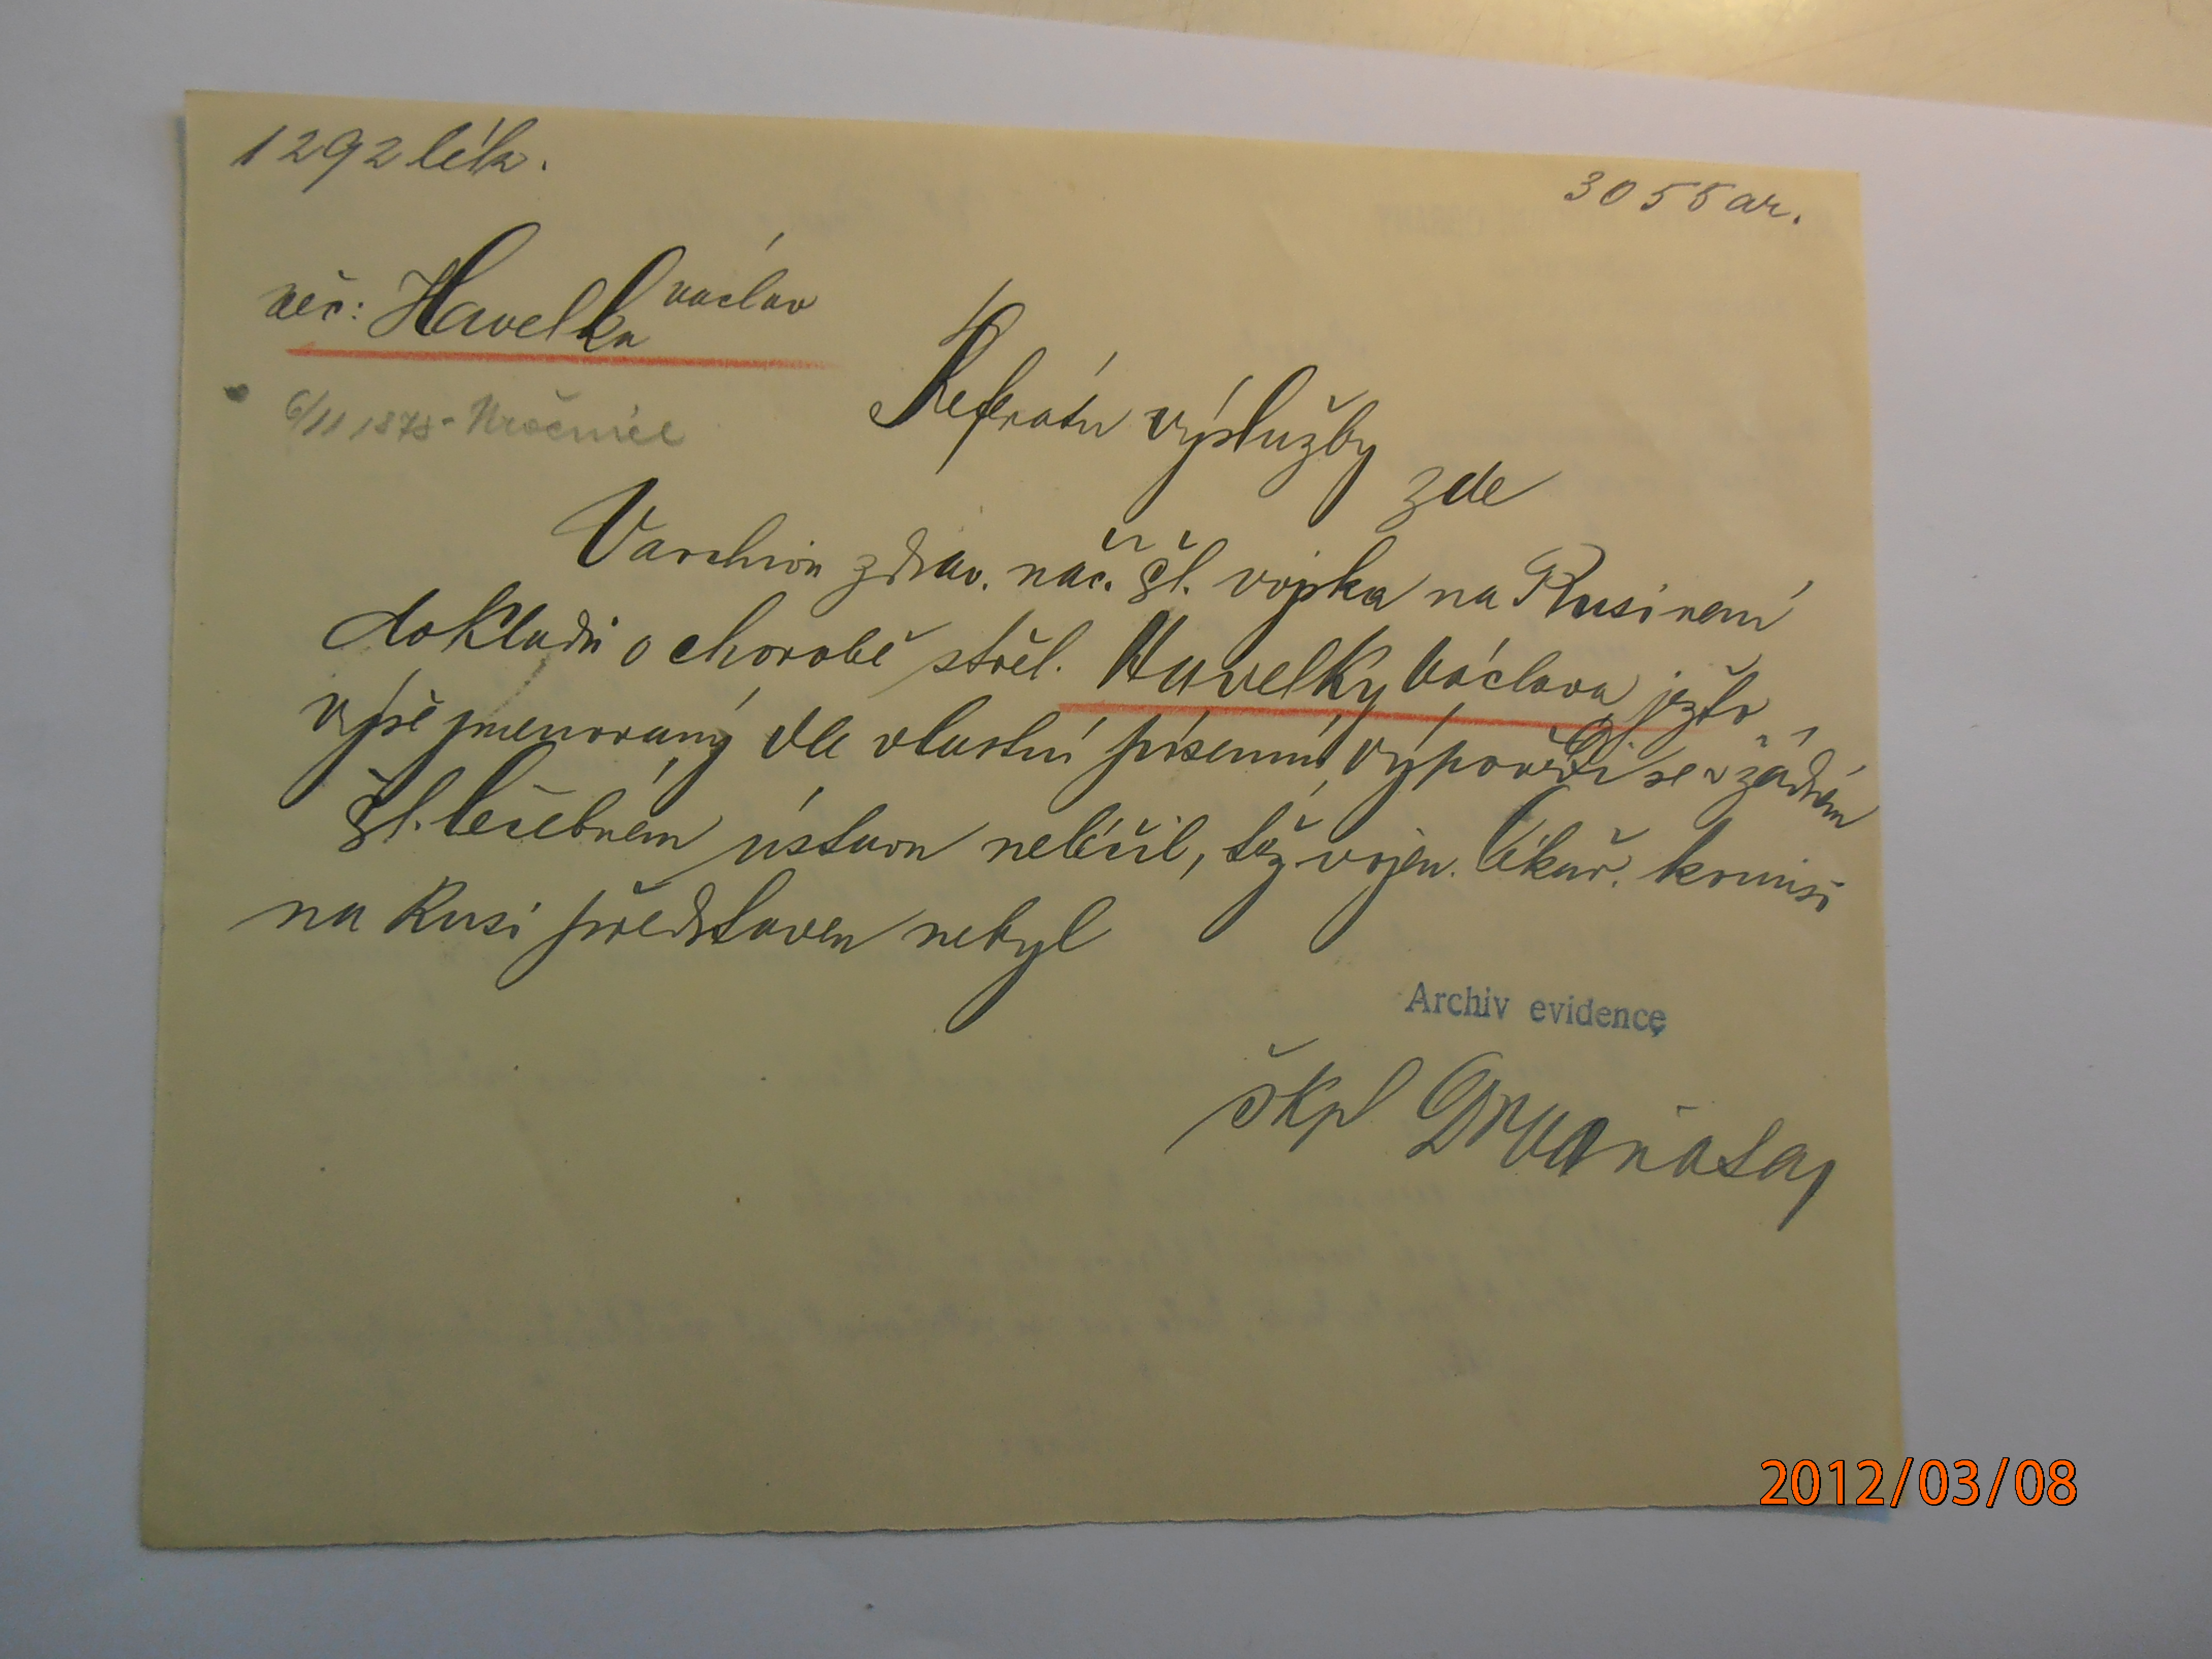 1292 lék.
3055 ar.
věc: Havelka Václav
6/11 1878 -
Referátu výslužby
zde
V archivu zdrav. náč. čsl. vojska na Rusi není
dokladů o chorobě střel. Havelky Václava ježto
výše jmenovaný dle vlastní písemné výpovědi se v žádném
čsl. léčebném ústavu neléčil, též vojen. lékař. komisi
na Rusi představen nebyl
Archiv evidence
škpt
2012/03/08